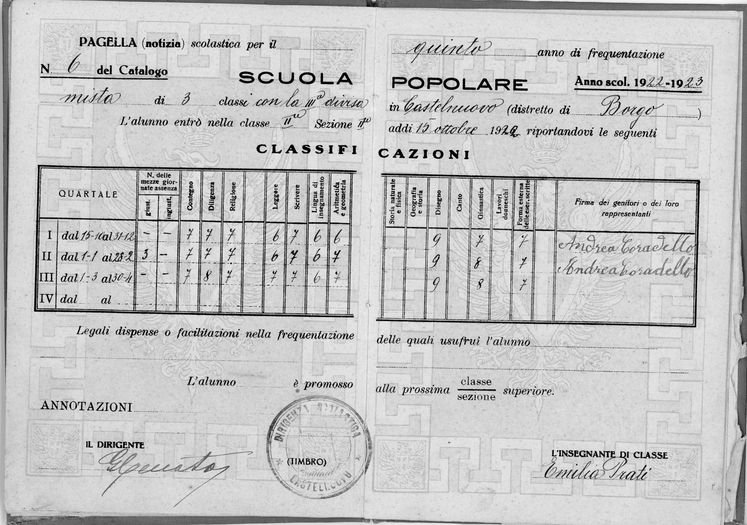 PAGELLA (notizia) scolastica per il quinto anno di frequentazione
N 6 del Catalogo SCUOLA POPOLARE Anno scol. 1922-1923
mista di 3 classi con la IIIª divisa in Castelnuovo (distretto di Borgo)
L'alunno entrò nella classe IIª Sezione IIª addì 15 ottobre 1922 riportandovi le seguenti
CLASSIFICAZIONI
QUARTALE N. delle mezze giornate assenza giust. ingiust. Contegno Diligenza Religione Leggere Scrivere Lingua di insegnamento Aritmetica e geometria Storia naturale e fisica Geografia e storia Disegno Canto Ginnastica Lavori donneschi Forma esterna delle eser. scritte Firma dei genitori o dei loro rappresentanti
I dal 15-10 al 31-12 - - 7 7 7 6 7 6 6 9 7 7 Andrea Coradello
II dal 1-1 al 28-2 3 - 7 7 7 6 7 6 7 9 8 7 Andrea Coradello
III dal 1-3 al 30-4 - - 7 8 7 7 7 6 7 9 8 7
IV dal al
Legali dispense o facilitazioni nella frequentazione delle quali usufruì l'alunno
L'alunno è promosso alla prossima classe
sezione superiore.
ANNOTAZIONI
IL DIRIGENTE
(TIMBRO)
DIRIGENZA SCOLASTICA
L'INSEGNANTE DI CLASSE
Emilia Prati